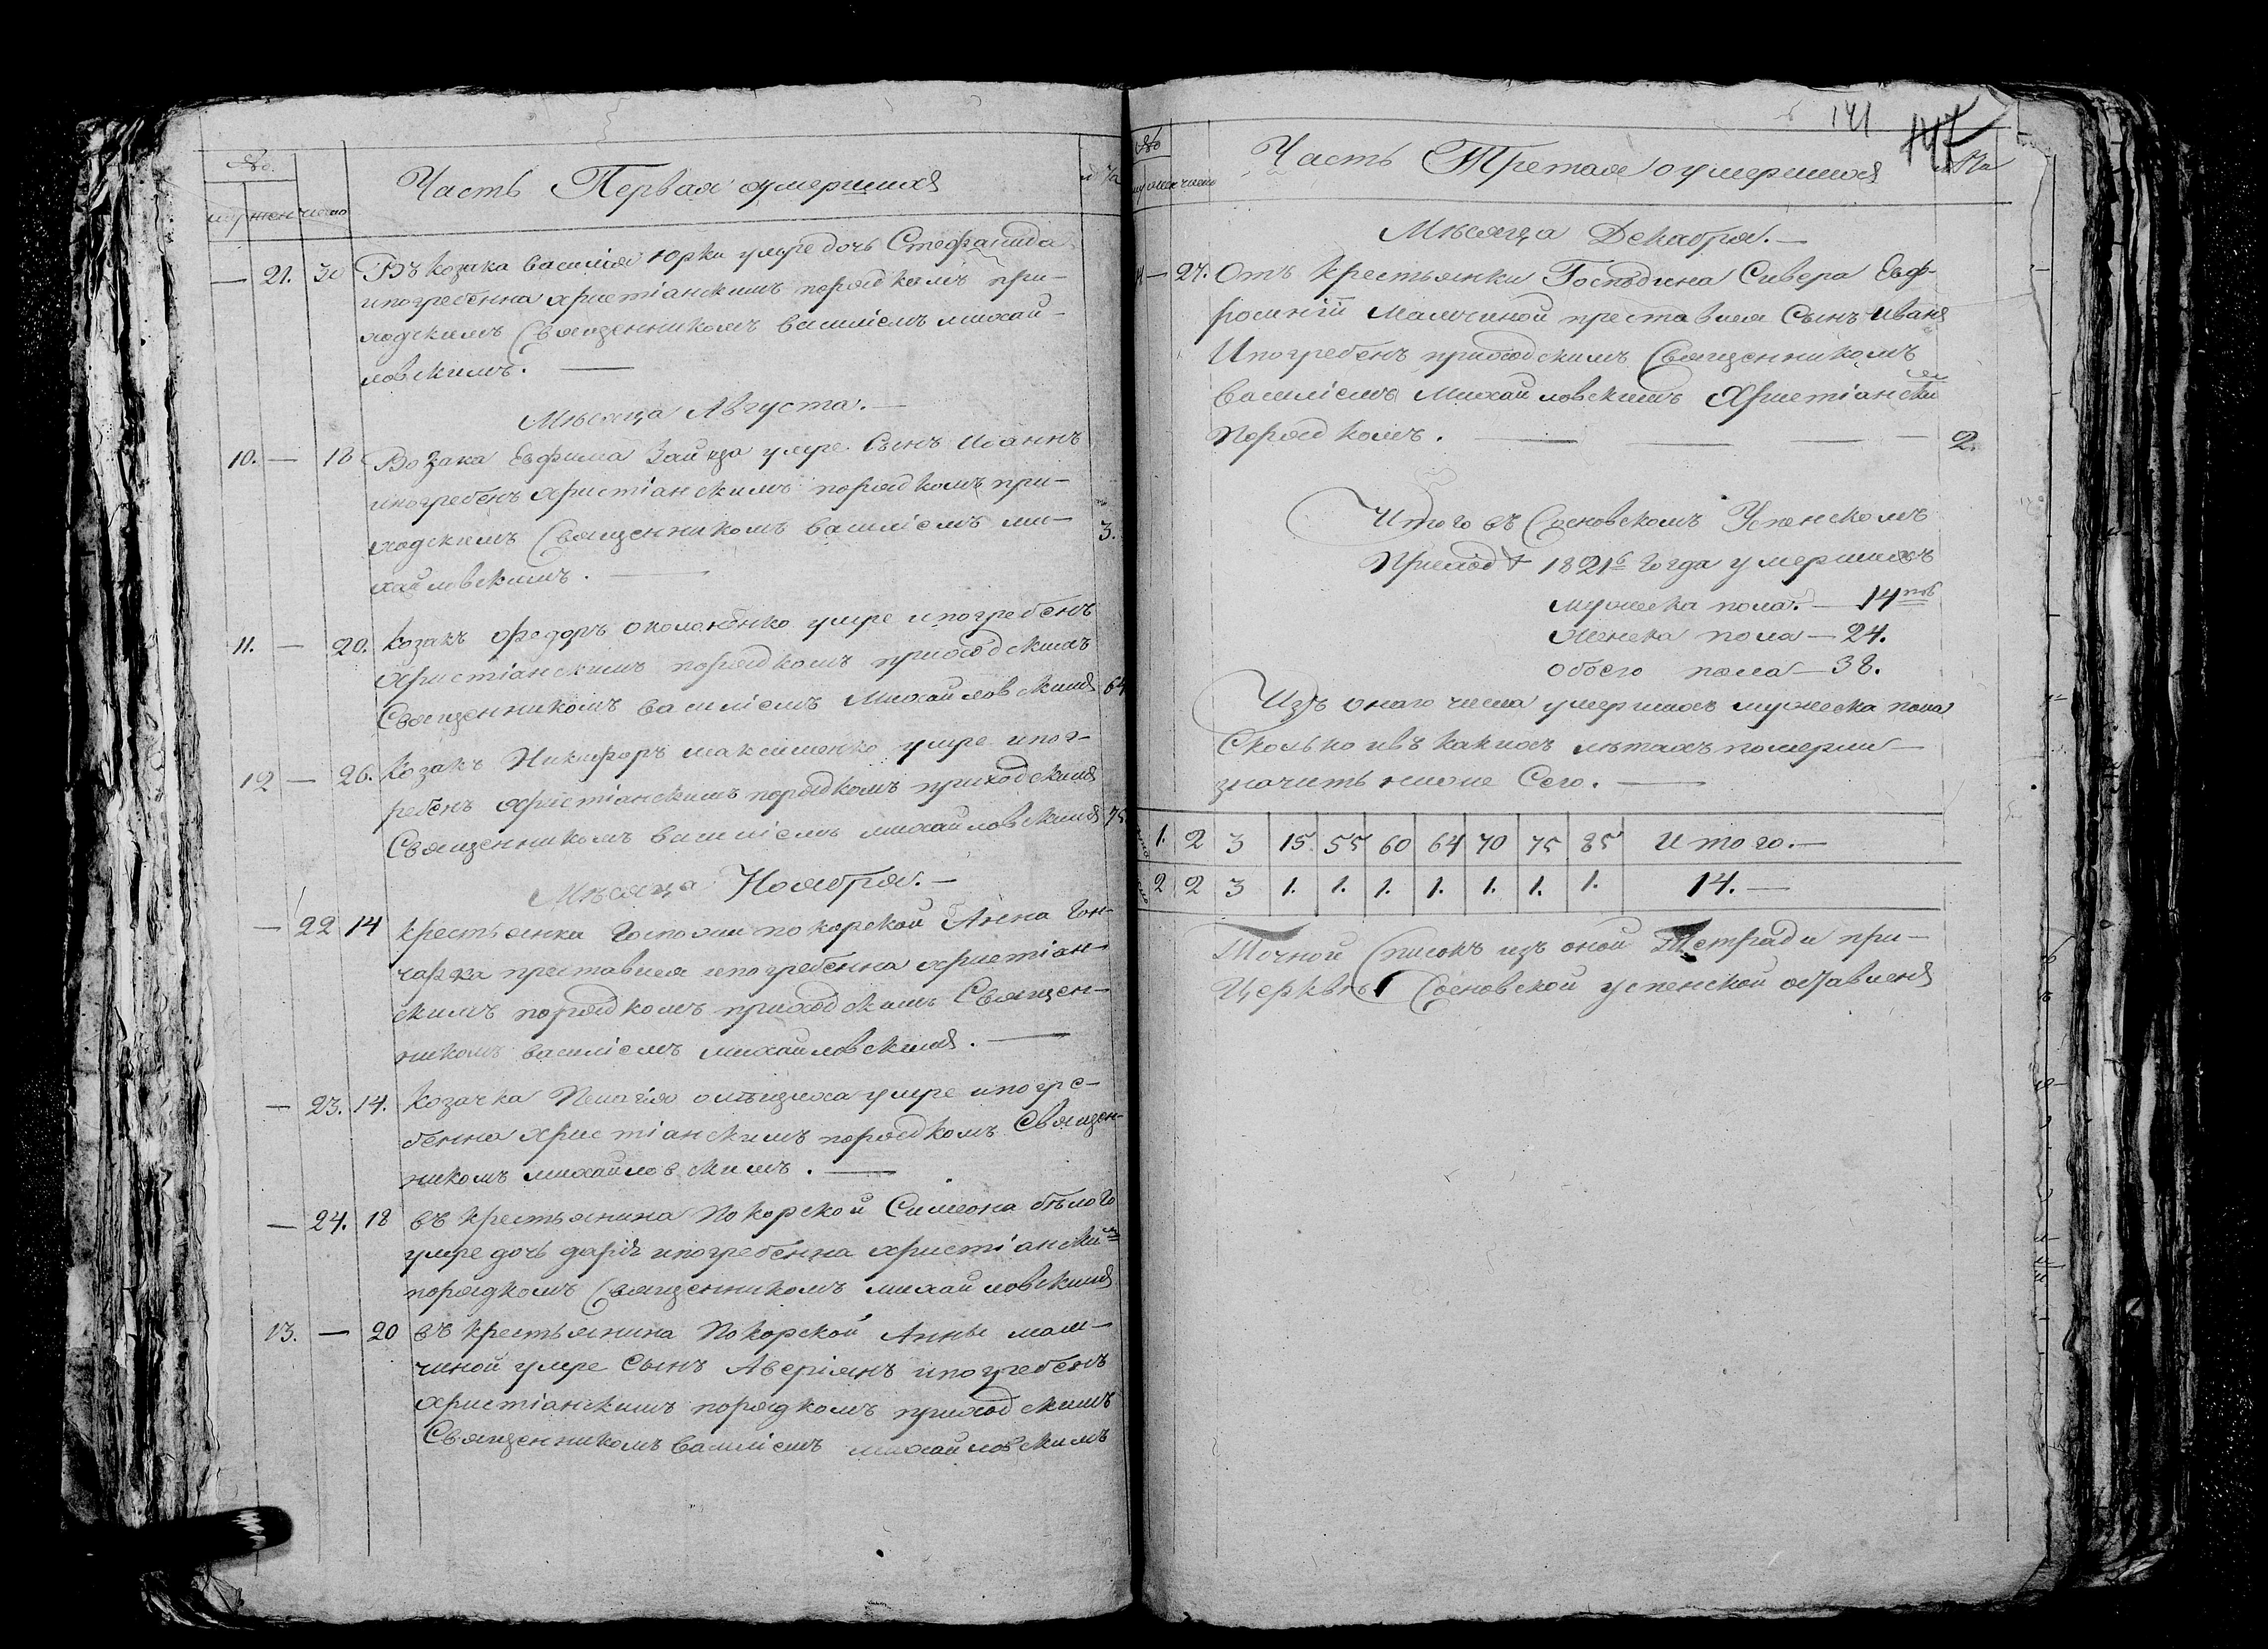 №
муж жен число
Часть Первая оумершихъ
— 21. 30 Въ козака василія юрки умре дочь Стефанида
ипогребенна христіанскимъ порядкомъ при-
ходскимъ Священникомъ василіемъ михай-
ловскимъ. —
Мѣсяца Августа. —
10. — 18 Вкозака Евфима Зайца умре Сынъ Иоаннъ
ипогребенъ христіанскимъ порядкомъ при-
ходскимъ Священникомъ василіемъ ми- 3.
хайловскимъ. —
11. — 20. Козакъ Федоръ умре ипогребенъ
христіанскимъ порядкомъ приходскимъ
Священникомъ василіемъ Михайловскимъ 64
12 — 26. Козакъ Никифоръ максименко умре ипог-
ребенъ христіанскимъ порядкомъ приходскимъ
Священникомъ василіемъ михайловскимъ 75
Мѣсяца Ноября. —
— 22 14 крестьянка Госпожи покорской Анна Гон-
чарка преставися ипогребенна христіан-
скимъ порядкомъ приходскимъ Священ-
никомъ василіемъ михайловскимъ. —
— 23. 14. Козачка Пелагія умре ипогре-
бенна христіанскимъ порядкомъ Священ-
никомъ михайловскимъ. —
— 24. 18 въ крестьянина Покорской Симеона бѣлого
умре дочь дарія ипогребенна христіански мъ
порядкомъ Священникомъ михайловскимъ
13. — 20 въ крестьянина Покорской Анны мам-
чиной умре Сынъ Аверіянъ ипогребенъ
христіанскимъ порядкомъ приходскимъ
Священникомъ василіемъ михайловскимъ
141
147
№
Часть Третая оумершихъ
Мѣсяца Декабря. —
14 — 27. Отъ крестьянки Господина Сивера Евф-
росиніи Мамчиной преставися Сынъ иванъ
Ипогребенъ приходскимъ Священникомъ
василіемъ Михайловскимъ Христіански мъ
Порядкомъ. — — — — 2.
Итого въ Сосновскомъ Успенскомъ
Приходѣ 1821го Года умершихъ
мужеска пола. — 14
женска пола — 24.
обоего пола — 38.
Изъ онаго числа умершихъ мужеска пола
Сколько ивъ какихъ лѣтахъ померли —
значитъ ниже Сего. —
1. 2 3 15. 55 60 64 70 75 85 Итого. —
2 2 3 1. 1. 1. 1. 1. 1. 1. 14. —
Точной Списокъ изъ оной Тетради при-
Церквѣ Сосновской успенской оставленъ